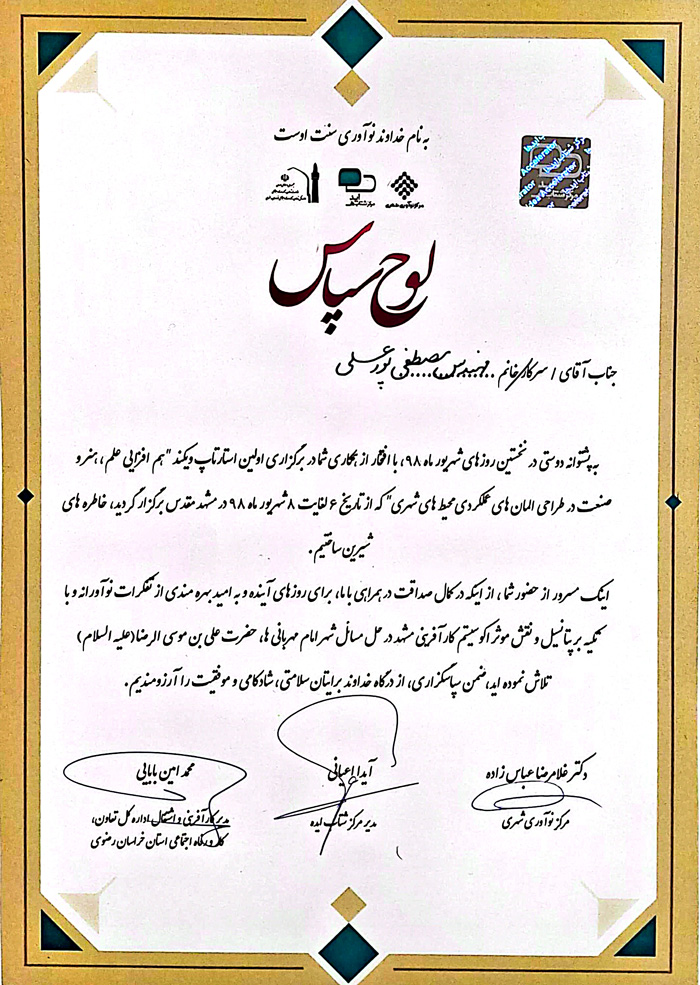 به نام خداوند نوآوری سنت اوست
مرکز نوآوری شهری
لوح سپاس
جناب آقای / سرکار خانم ..مهندس....مصطفی پورعلی
به پشتوانه دوستی در نخستین روزهای شهریور ماه ۹۸، با افتخار از همکاری شما در برگزاری اولین استارتاپ ویکند "هم افزایی علم، هنر و
صنعت در طراحی المان های عملکردی محیط های شهری" که از تاریخ ۶ لغایت ۸ شهریور ماه ۹۸ در مشهد مقدس برگزار گردید، خاطره های
شیرین ساختیم.
اینک مسرور از حضور شما، از اینکه در کمال صداقت در همراهی با ما، برای روزهای آینده و به امید بهره مندی از تفکرات نوآورانه و با
تکیه بر پتانسیل و نقش موثر اکوسیستم کارآفرینی مشهد در حل مسائل شهر امام مهربانی ها، حضرت علی بن موسی الرضا(علیه السلام)
تلاش نموده اید، ضمن سپاسگزاری، از درگاه خداوند برایتان سلامتی، شادکامی و موفقیت را آرزومندیم.
دکتر غلامرضا عباس زاده
مرکز نوآوری شهری
آیدا اعیانی
مدیر مرکز شتاب ایده
محمد امین بابایی
مدیر کارآفرینی و اشتغال اداره کل تعاون،
کار و رفاه اجتماعی استان خراسان رضوی